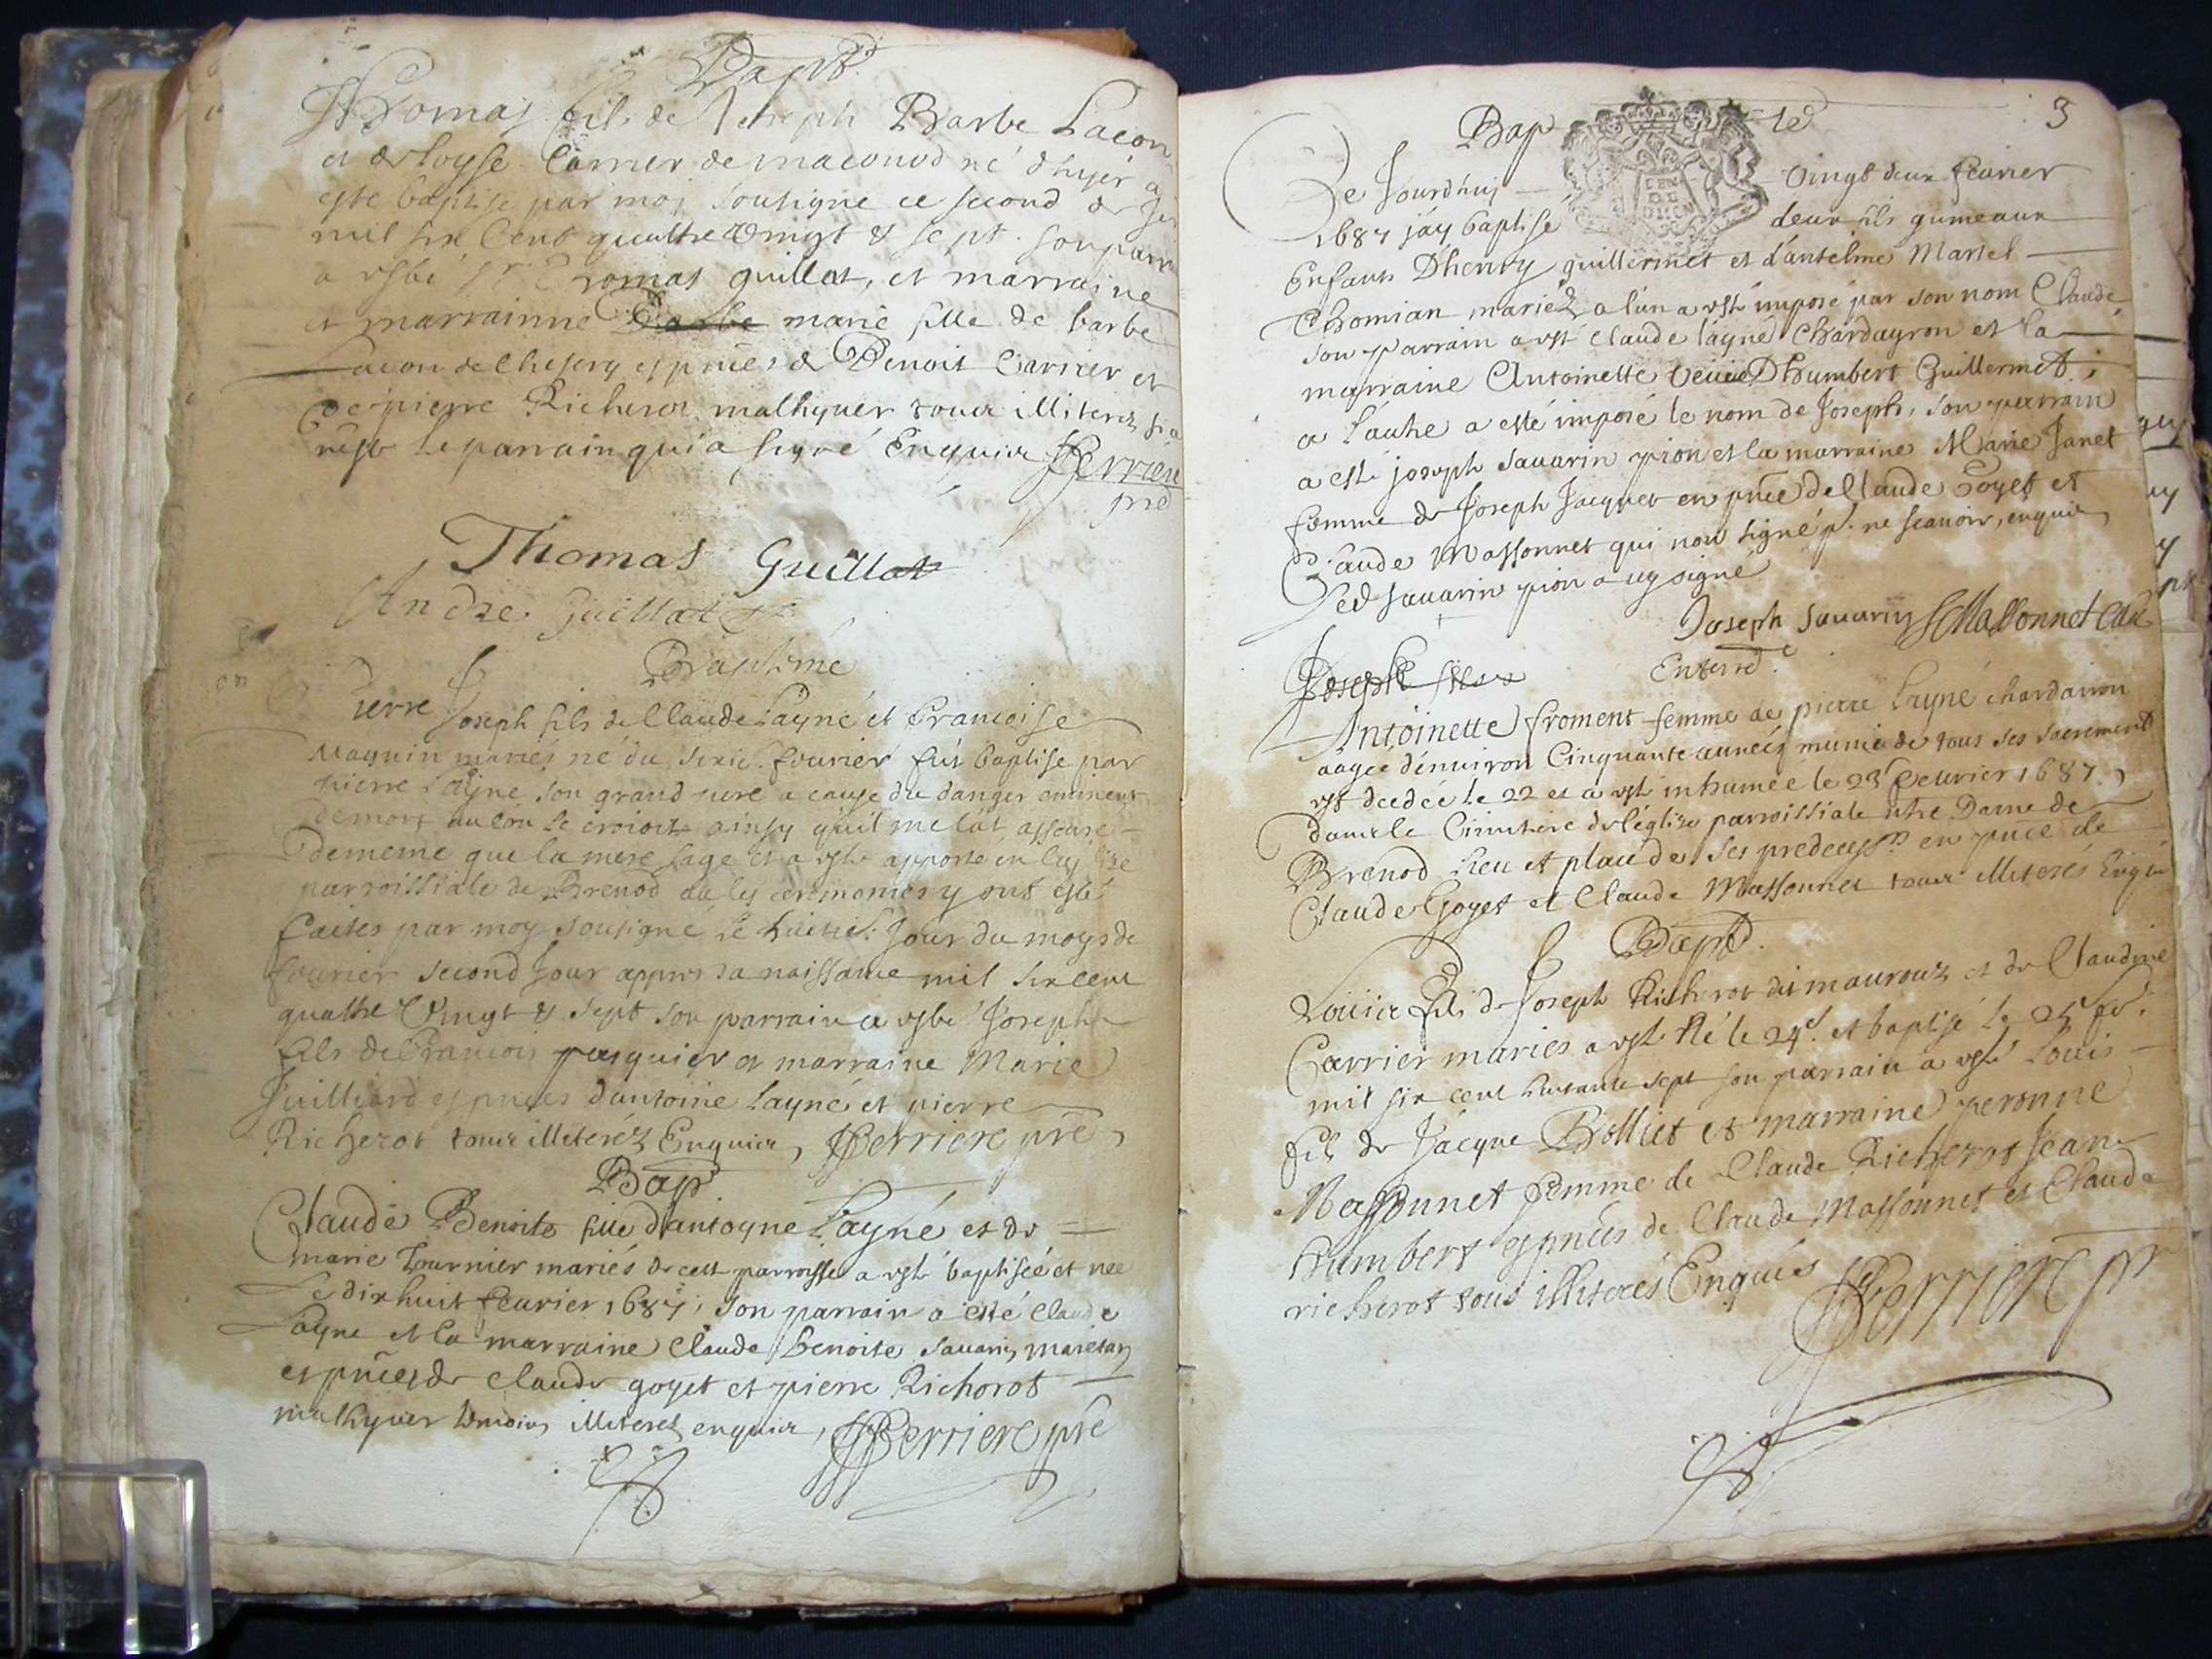 Bapt.
Thomas fils de Joseph Barbe Lacon
et de loyse Carrier de maconod né dhyer a
este baptise par moj sousigne ce second de
mil six Cent quattre vingt & sept. son parr
a esté Sr. Thomas guillot, et marraine
et marrainne Barbe marie fille de barbe
Lacon de Chesery es pnces de Benoit Carrier et
de pierre Richerot malhyver tous illiterez si
nest le parrain qui a signé Enquis Perriere
pre
Thomas Guillot
Andre Guillot
Baptême
Pierre Joseph fils de Claude Layné et francoise
maquin mariés né du sixie. fevrier fut baptise par
pierre Layne son grand pere a cause du danger eminent
de mort ou lon le croioit ainsy quil me lat asseuré
de meme que la mere sage et a esté apporté en leglise
parroissiale de Brenod ou les ceremonies y ont esté
faites par moy sousigné le huitie. jour du moys de
fevrier second jour appres sa naissance mil six cent
quattre Vingt & sept son parrain a esté Joseph
fils de francois pasquier et marraine Marie
Juilliard es pnces dantoine Layné et pierre
Richerot tous illiterez Enquis, Perriere pre
Bap
Claude Benoite fille dantoyne Layné et de
marie Tournier mariés de cett parroisse a esté baptisée et nee
Le dixhuit fevrier 1687, son parrain a esté claude
Layne et la marraine Claude Benoite savarin
es pnces de claude goyet et pierre Richerot
malhyver temoins illiterez enquis, Perriere pre
3
Bap te
Ce Jourdhuj vingt deux fevrier
1687 jáy baptisé deux fils gumeaux
Enfants D'henry guillermet et d'antelme Martel
Chomian mariez a l'un a esté imposé par son nom Claude
son parrain a esté claude layné chardayron et la
marraine Antoinette veüue D'humbert Guillermet,
a láutre a esté imposé le nom de Joseph, son parrain
a esté joseph savarin pion et la marraine Marie Janet
femme de Joseph Jacquet en pnce de Claude Goyet et
Claude Massonnet qui nont signé p. ne scavoir, enquis
Led savarin pion a icy signé
Joseph savarin Massonnet
Joseph fils
Enterre.
Antoinette froment femme de pierre Layné chardairon
aagée denviron Cinquante années munie de tous ses sacrements
est decedée le 22 et a esté inhumée le 23 fevrier 1687
dans le Cimitiere de léglise parroissiale ntre Dame de
Brenod lieu et place de ses predecess.rs en pnce de
Claude Goyet et Claude Massonnet tous illiterés Enquis
Bapt.
Louis fils de Joseph Richerot dit mauroux et de Claudine
Carrier mariés a esté Né le 24e. et baptisé le 25 fe.
mil six cent huitante sept son parrain a esté Louis
fils de Jacque Bolliet et marraine peronne
Massonnet femme de Claude Richerot Jean
humbert es pnces de Claude Massonnet et Claude
richerot tous illiterés Enquis Perriere pre